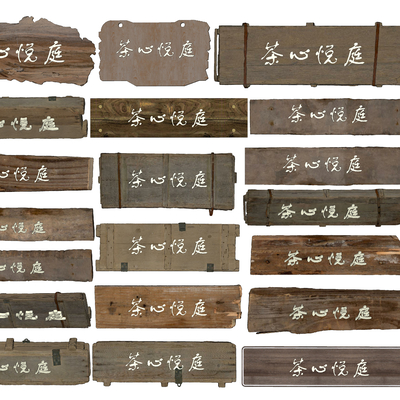 心悦庭
茶心悦庭
茶心悦庭
心悦庭
茶心悦庭
茶心悦庭
心悦庭
茶心悦庭
茶心悦庭
心悦庭
茶心悦庭
茶心悦庭
心悦庭
茶心悦庭
茶心悦庭
心悦庭
茶心悦庭
茶心悦庭
心悦庭
茶心悦庭